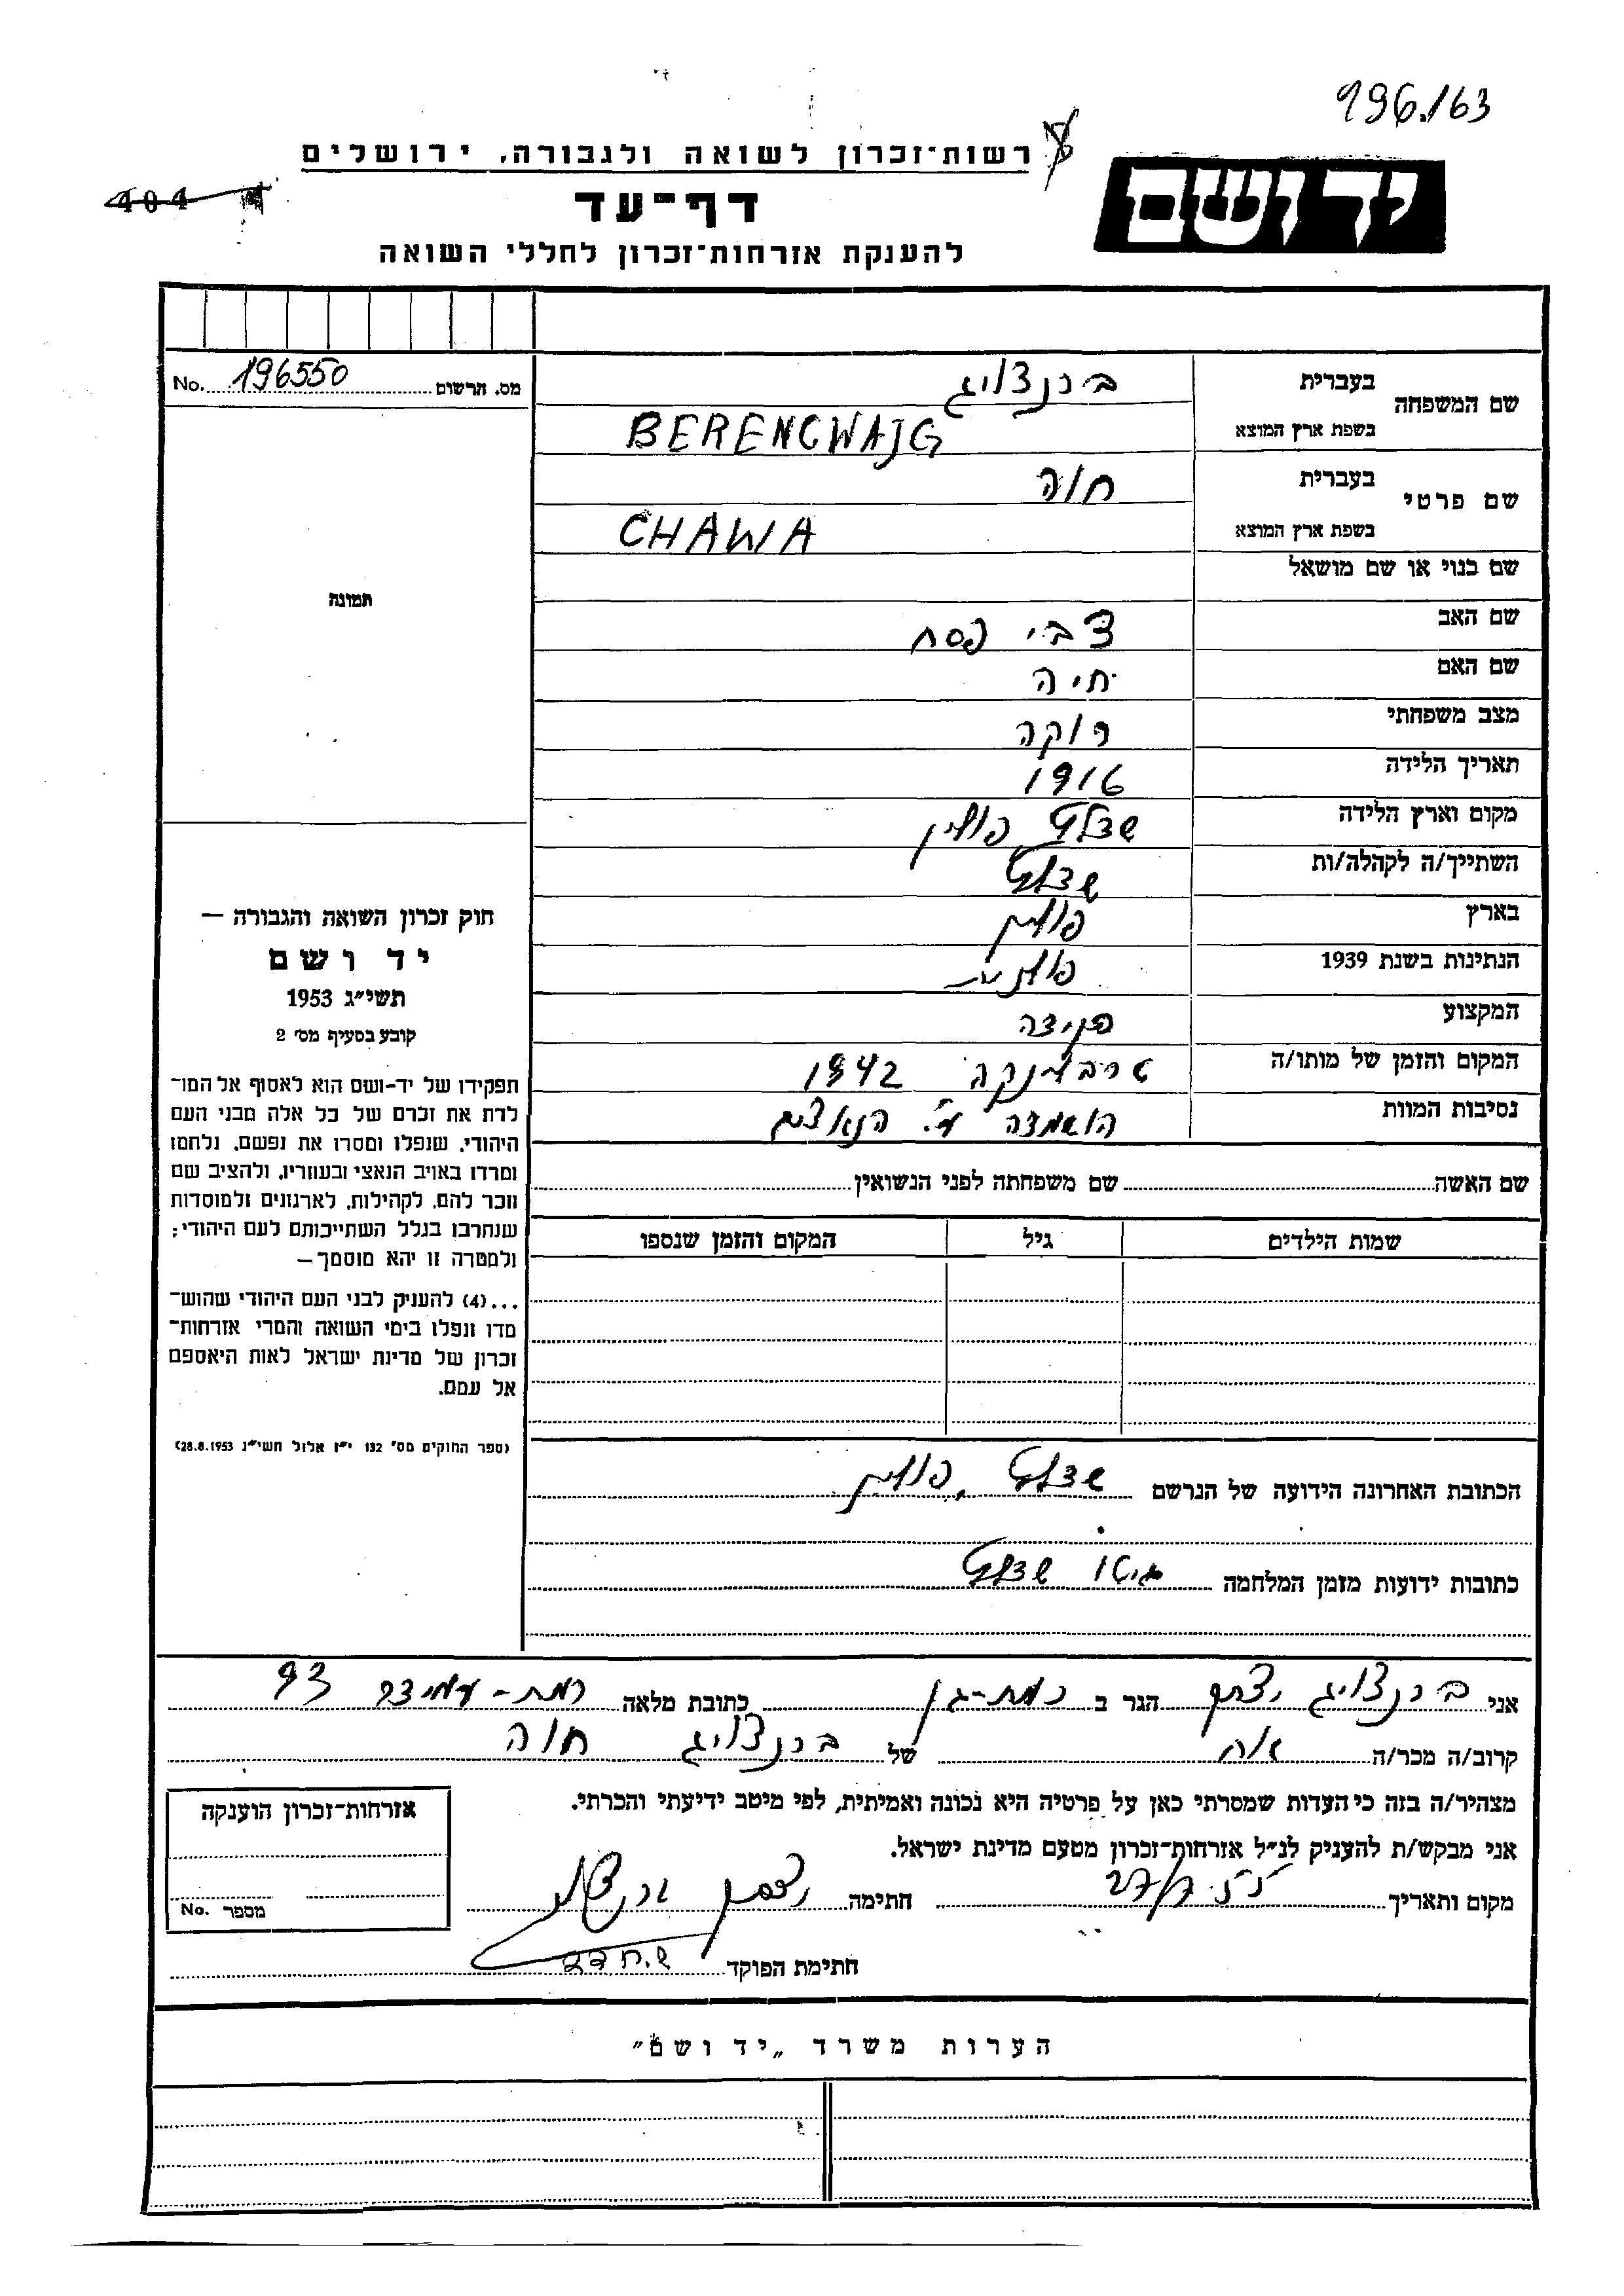 196./63
רשות־זכרון לשואה ולגבורה, ירושלים
יד ושם
404
דף־עד
להענקת אזרחות־זכרון לחללי השואה
מס. הרשום 196550 No.
שם המשפחה
בעברית ברנצוויג
בשפת ארץ המוצא BERENCWAJG
שם פרטי
בעברית חוה
בשפת ארץ המוצא CHAWA
שם בנוי או שם מושאל
שם האב צבי פסח
שם האם חיה
מצב משפחתי רוקה
תאריך הלידה 1916
מקום וארץ הלידה שדלץ פולין
השתייך/ה לקהלה/ות שדלץ
בארץ פולין
הנתינות בשנת 1939 פולנית
המקצוע פקידה
המקום והזמן של מותו/ה טרבלינקה 1942
נסיבות המוות הושמדה ע"י הנאצים
שם האשה שם משפחתה לפני הנשואין
שמות הילדים גיל המקום והזמן שנספו
הכתובת האחרונה הידועה של הנרשם שדלץ, פולין
כתובות ידועות מזמן המלחמה גיטו שדלץ
תמונה
חוק זכרון השואה והגבורה —
יד ושם
תשי״ג 1953
קובע בסעיף מס׳ 2
תפקידו של יד-ושם הוא לאסוף אל המו־
לדת את זכרם של כל אלה מבני העם
היהודי, שנפלו ומסרו את נפשם, נלחמו
ומרדו באויב הנאצי ובעוזריו, ולהציב שם
וזכר להם, לקהילות, לארגונים ולמוסדות
שנחרבו בגלל השתייכותם לעם היהודי;
ולמטרה זו יהא מוסמך —
...(4) להעניק לבני העם היהודי שהוש־
מדו ונפלו בימי השואה והמרי אזרחות־
זכרון של מדינת ישראל לאות היאספם
אל עמם.
(ספר החוקים מס׳ 132 י״ז אלול תשי״ג 28.8.1953)
אני ברנצוויג יצחק הגר ב רמת-גן כתובת מלאה רמת-עמידר 93
קרוב/ה מכר/ה אח של ברנצוויג חוה
מצהיר/ה בזה כי העדות שמסרתי כאן על פרטיה היא נכונה ואמיתית, לפי מיטב ידיעתי והכרתי.
אני מבקש/ת להעניק לנ״ל אזרחות־זכרון מטעם מדינת ישראל.
מקום ותאריך חתימה
חתימת הפוקד
אזרחות־זכרון הוענקה
מספר No.
הערות משרד „יד ושם״